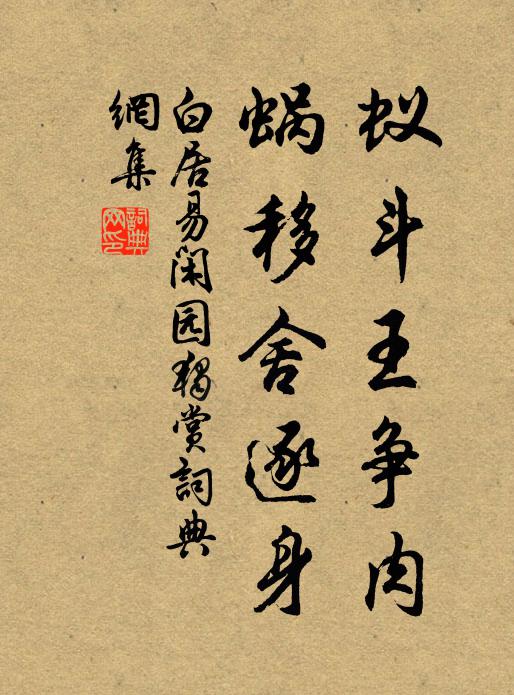 蚁斗王争肉
蜗移舍逐身
白居易闲园独赏詞典
網集
詞典
网印